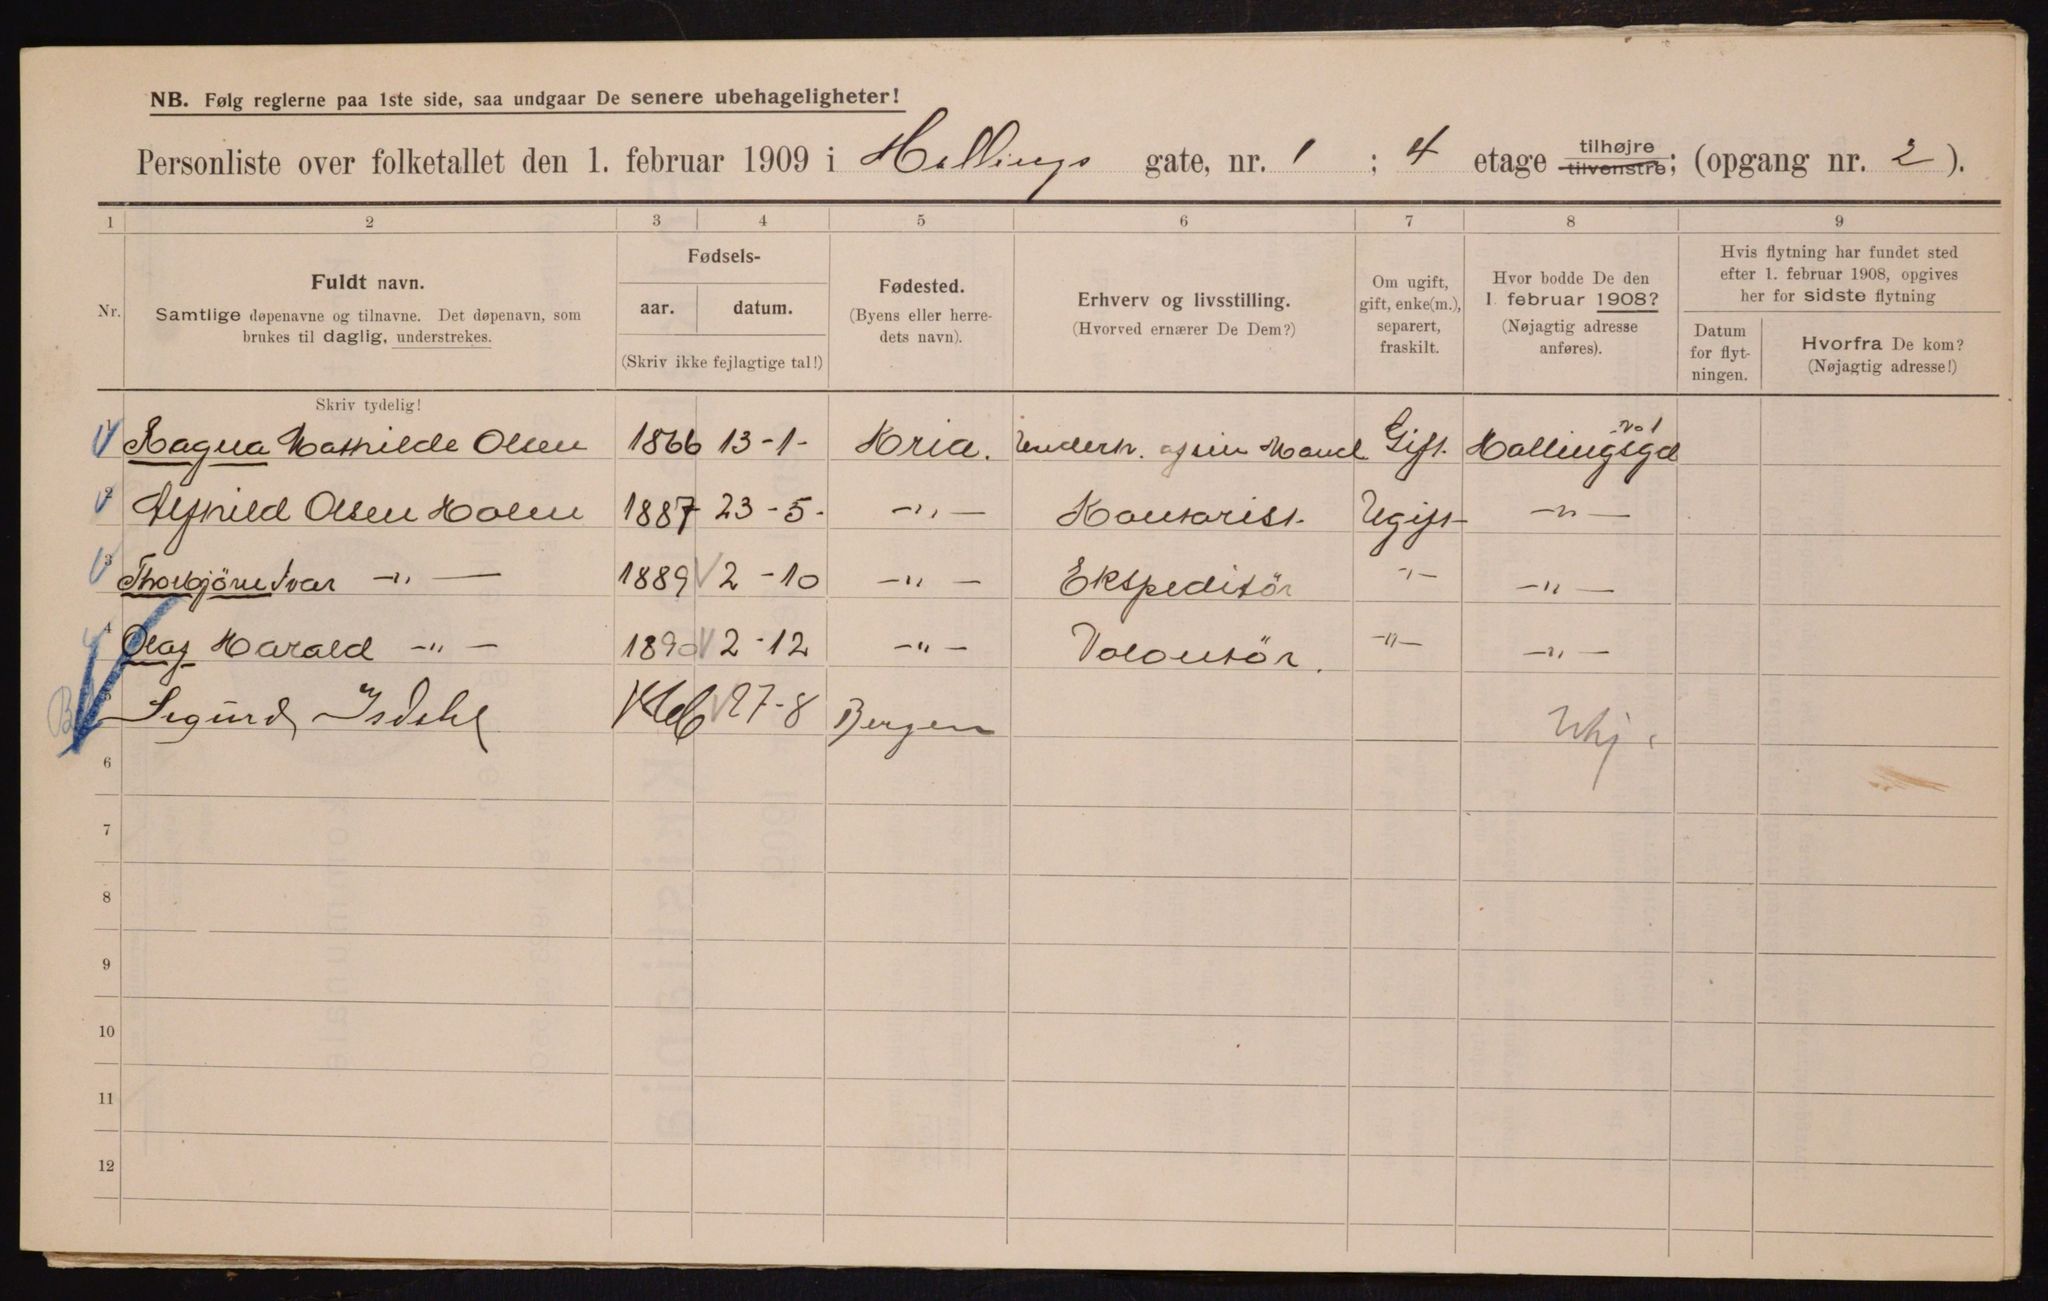 NB. Følg reglerne paa 1ste side, saa undgaar De senere ubehageligheter!
Personliste over folketallet den 1. februar 1909 i Hallings gate, nr. 1 ; 4 etage tilhøjre tilvenstre; (opgang nr. 2 ).
1 2 3 4 5 6 7 8 9
Nr. Fuldt navn. Samtlige døpenavne og tilnavne. Det døpenavn, som brukes til daglig, understrekes.
Fødsels- aar. datum. (Skriv ikke fejlagtige tal!)
Fødested. (Byens eller herredets navn).
Erhverv og livsstilling. (Hvorved ernærer De Dem?)
Om ugift, gift, enke(m.), separert, fraskilt.
Hvor bodde De den 1. februar 1908? (Nøjagtig adresse anføres).
Hvis flytning har fundet sted efter 1. februar 1908, opgives her for sidste flytning
Datum for flytningen. Hvorfra De kom? (Nøjagtig adresse!)
Skriv tydelig!
1 Ragna Mathilde Olsen 1866 13-1- Kria. Underh. af sin Mand Gift. Hallingsgd No 1
2 Alfhild Olsen Holm 1887 23-5- -"- Kontorist. Ugift -"-
3 Thorbjörn Ivar -"- 1889 2-10 -"- Ekspeditör -"- -"-
4 Olaf Harald -"- 1890 2-12 -"- Volontör. -"- -"-
Sigurd Isdahl 27-8 Bergen
6
7
8
9
10
11
12